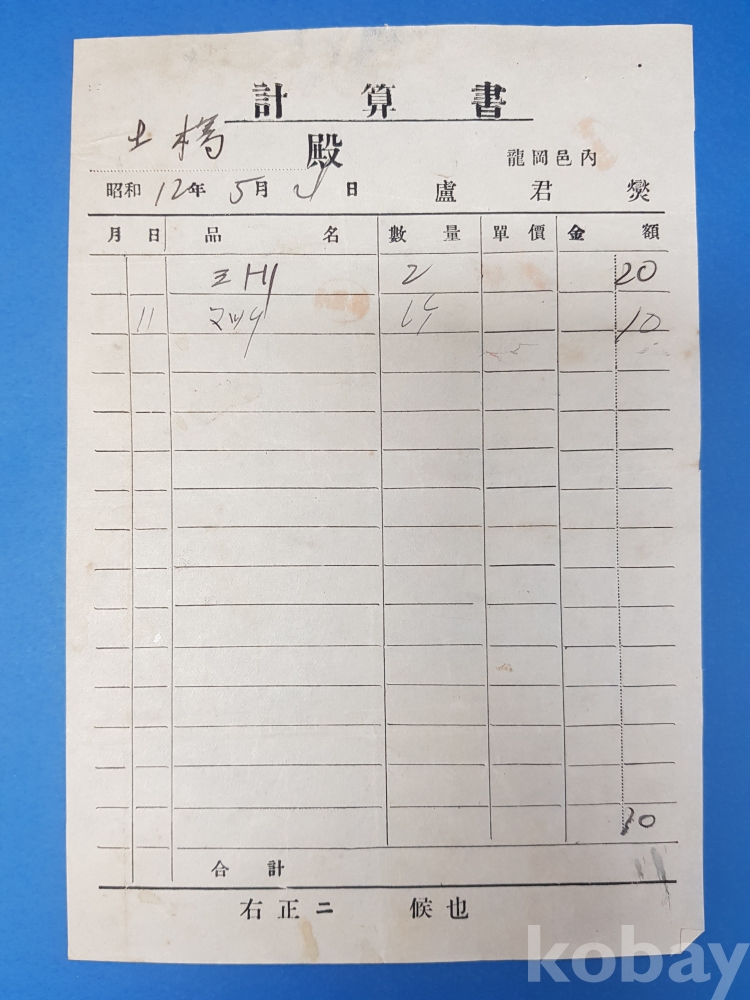 計算書
土橋 殿 龍岡邑內
昭和 12年 5月 日 盧君燮
月 日 品名 數量 單價 金額
2 20
11 マッチ 10
30
合計
右正ニ候也
kobay